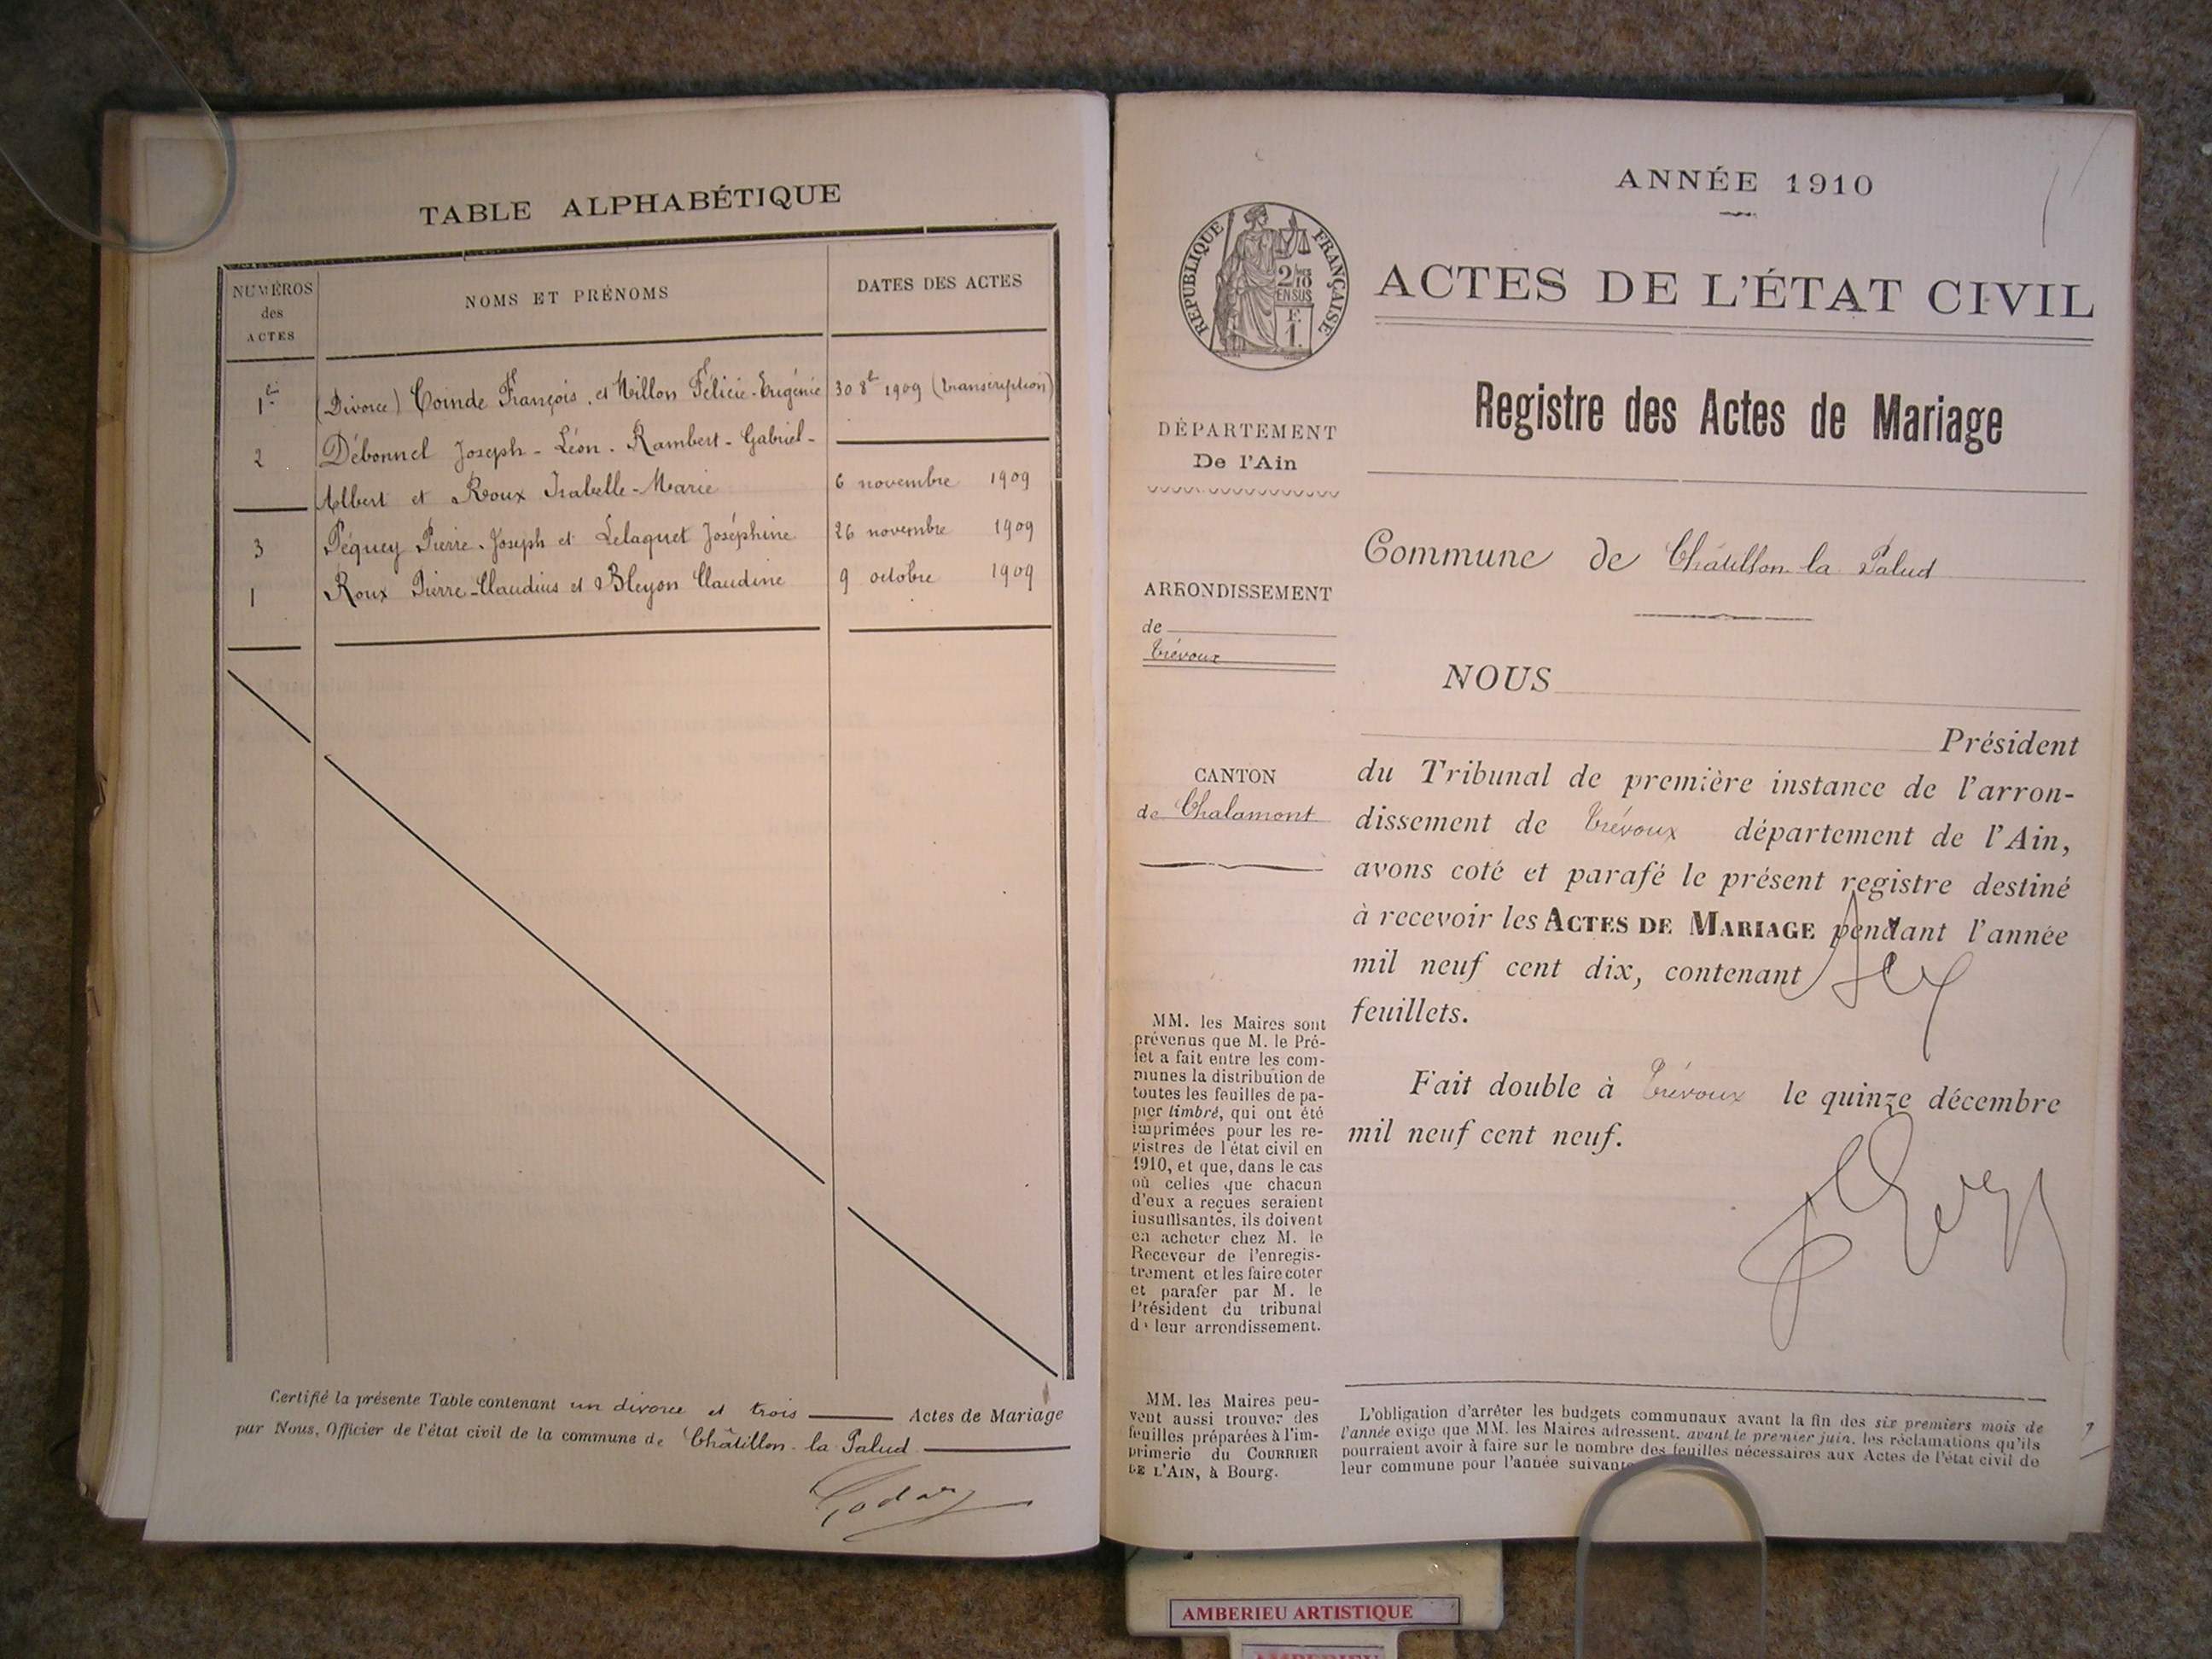 TABLE ALPHABÉTIQUE
NUMÉROS des ACTES
NOMS ET PRÉNOMS
DATES DES ACTES
1er (Divorce) Coinde François et Millon Félicie-Eugénie 30 8bre 1909 (transcription)
2 Débonnel Joseph - Léon - Rambert - Gabriel -
Albert et Roux Isabelle-Marie 6 novembre 1909
3 Péquey Pierre-Joseph et Lelaquet Joséphine 26 novembre 1909
1 Roux Pierre-Claudius et Bleyon Claudine 9 octobre 1909
Certifié la présente Table contenant un divorce et trois Actes de Mariage
par Nous, Officier de l'état civil de la commune de Châtillon-la-Palud
ANNÉE 1910
RÉPUBLIQUE FRANÇAISE
2/10
EN SUS
F.
1.
ACTES DE L'ÉTAT CIVIL
Registre des Actes de Mariage
DÉPARTEMENT
De l'Ain
Commune de Châtillon-la-Palud
ARRONDISSEMENT
de
Trévoux
CANTON
de Chalamont
NOUS
Président
du Tribunal de première instance de l'arron-
dissement de Trévoux département de l'Ain,
avons coté et parafé le présent registre destiné
à recevoir les ACTES DE MARIAGE pendant l'année
mil neuf cent dix, contenant
feuillets.
Fait double à Trévoux le quinze décembre
mil neuf cent neuf.
MM. les Maires sont
prévenus que M. le Pré-
fet a fait entre les com-
munes la distribution de
toutes les feuilles de pa-
pier timbré, qui ont été
imprimées pour les re-
gistres de l'état civil en
1910, et que, dans le cas
où celles que chacun
d'eux a reçues seraient
insuffisantes, ils doivent
en acheter chez M. le
Receveur de l'enregis-
trement et les faire coter
et parafer par M. le
Président du tribunal
de leur arrondissement.
MM. les Maires peu-
vent aussi trouver des
feuilles préparées à l'im-
primerie du COURRIER
DE L'AIN, à Bourg.
L'obligation d'arrêter les budgets communaux avant la fin des six premiers mois de
l'année exige que MM. les Maires adressent, avant le premier juin, les réclamations qu'ils
pourraient avoir à faire sur le nombre des feuilles nécessaires aux Actes de l'état civil de
leur commune pour l'année suivante
AMBERIEU ARTISTIQUE
AMBERIEU